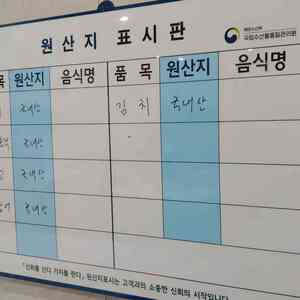 원산지 표시판
국립수산물품질관리원
목 원산지 음식명 품 목 원산지 음식명
국내산 김 치 국내산
국내산
국내산
국내산
「신뢰를 산다 가치를 판다」 원산지표시는 고객과의 소중한 신뢰의 시작입니다